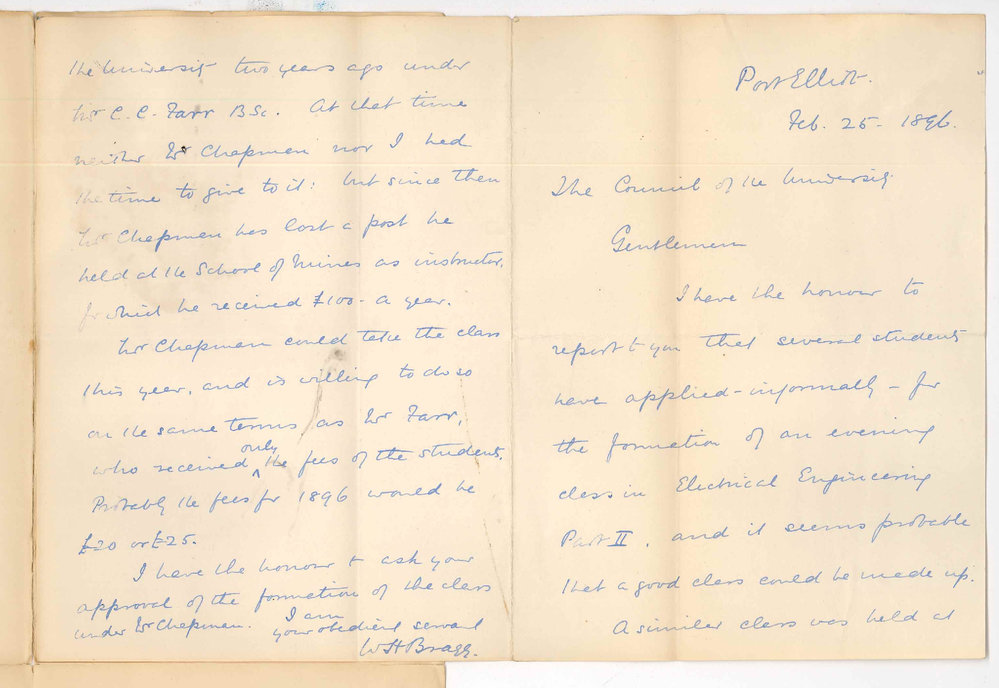 Port Elliot.
Feb. 25 - 1896.
The Council of the University
Gentlemen
I have the honour to
report to you that several students
have applied - informally - for
the formation of an evening
class in Electrical Engineering
Part II, and it seems probable
that a good class could be made up.
A similar class was held at
the University two years ago under
Mr C. C. Farr B Sc. At that time
neither Mr Chapman nor I had
the time to give to it: but since then
Mr Chapman has lost a post he
held at the School of Mines as instructor,
for which he received £100 - a year.
Mr Chapman could take the class
this year, and is willing to do so
on the same terms as Mr Farr,
who received only the fees of the students.
Probably the fees for 1896 would be
£20 or £25.
I have the honour to ask your
approval of the formation of the class
under Mr Chapman. I am
your obedient servant
W H Bragg.